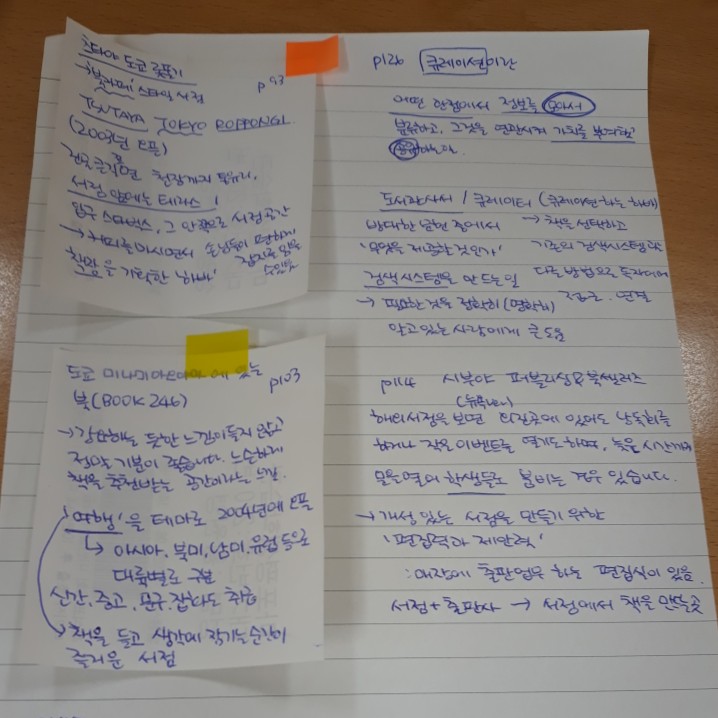 츠타야 도쿄 롯폰기
'북카페' 스타일 서점 p93
TSUTAYA TOKYO ROPPONGI
(2003년 오픈)
건물 큰길면 천장까지 통유리,
서점 앞에는 테라스!
입구 스타벅스, 그 안쪽으로 서점공간
→ 커피를 마시면서 손님들이 편하게
책, 잡지를 읽을 수 있음
을 기획한 '하바'
도쿄 미나미아오야마에 있는 p103
북(BOOK246)
→ 강요하는 듯한 느낌이 들지 않고
정말 기분이 좋습니다. 느슨하게
책을 추천받는 공간이라는 느낌.
'여행'을 테마로 2004년에 오픈
↳ 아시아, 북미, 남미, 유럽 등으로
대륙별로 구분
신간, 중고, 문구, 잡화도 취급
→ 책을 들고 생각에 잠기는 순간이
즐거운 서점
p126 큐레이션이란
어떤 관점에서 정보를 모아서
분류하고, 그것을 연관시켜 가치를 부여하고
공유하는 일.
도서관사서 / 큐레이터 (큐레이션하는 하바)
방대한 남편 중에서 → 책을 선택하고
'무엇을 제공할 것인가' 기존의 검색시스템과
검색시스템을 만드는 일 다른 방법으로 독자에게
→ 필요한 것을 정확히(명확히) 접근·연결
알고 있는 사람에게 큰 도움
p114 시부야 퍼블리싱&북셀러즈
(뉴욕)
해외서점을 보면 외진곳에 있어도 낭독회를
하거나 작은 이벤트를 열기도 하며, 늦은 시간까지
문을 열어 학생들로 붐비는 경우 있습니다.
→ 개성 있는 서점을 만들기 위한
'편집력과 제안력'
: 매장에 출판업무 하는 편집실이 있음.
서점+출판사 → 서점에서 책을 만들 곳